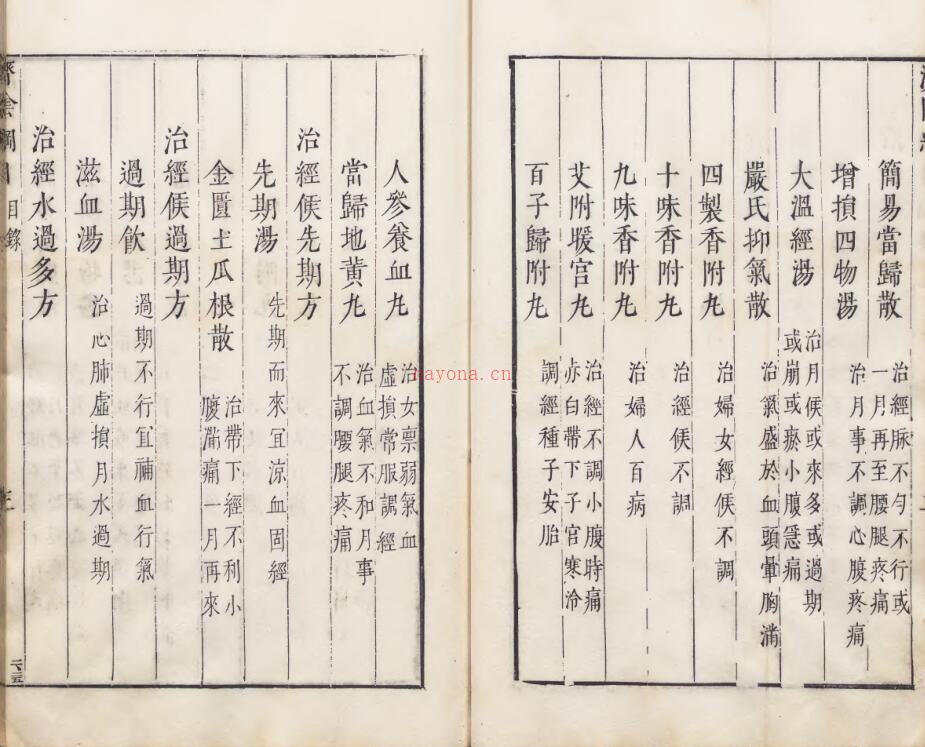 簡易當歸散 治經脉不勻不行或一月再至腰腿疼痛
增損四物湯 治月事不調心腹疼痛
大溫經湯 治月候或來多或過期或崩或瘀小腹急痛
嚴氏抑氣散 治氣盛於血頭暈胸滿
四製香附九 治婦女經候不調
十味香附九 治經候不調
九味香附九 治婦人百病
艾附暖宫九 治經不調小腹時痛赤白帶下子宫寒冷
百子歸附九 調經種子安胎
人參養血九 治女禀弱氣血虛損常服調經
當歸地黄九 治血氣不和月事不調腰腿疼痛
治經候先期方
先期湯 先期而來宜涼血固經
金匱土瓜根散 治帶下經不利小腹滿痛一月再來
治經候過期方
過期飲 過期不行宜補血行氣
滋血湯 治心肺虛損月水過期
治經水過多方
濟陰綱目 目錄
kayona.cn